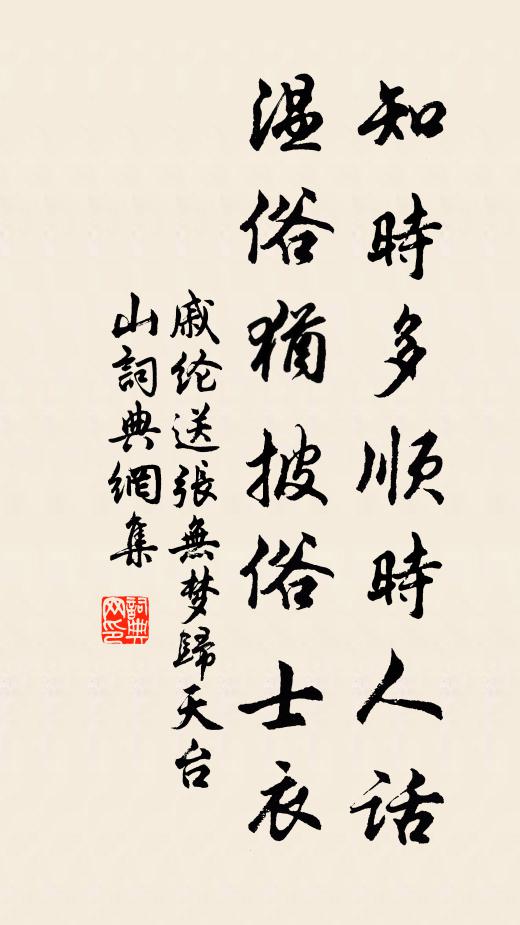 知時多順時人話
温俗猶披俗士衣
戚纶送張無梦歸天台
山詞典網集
詞典
网印